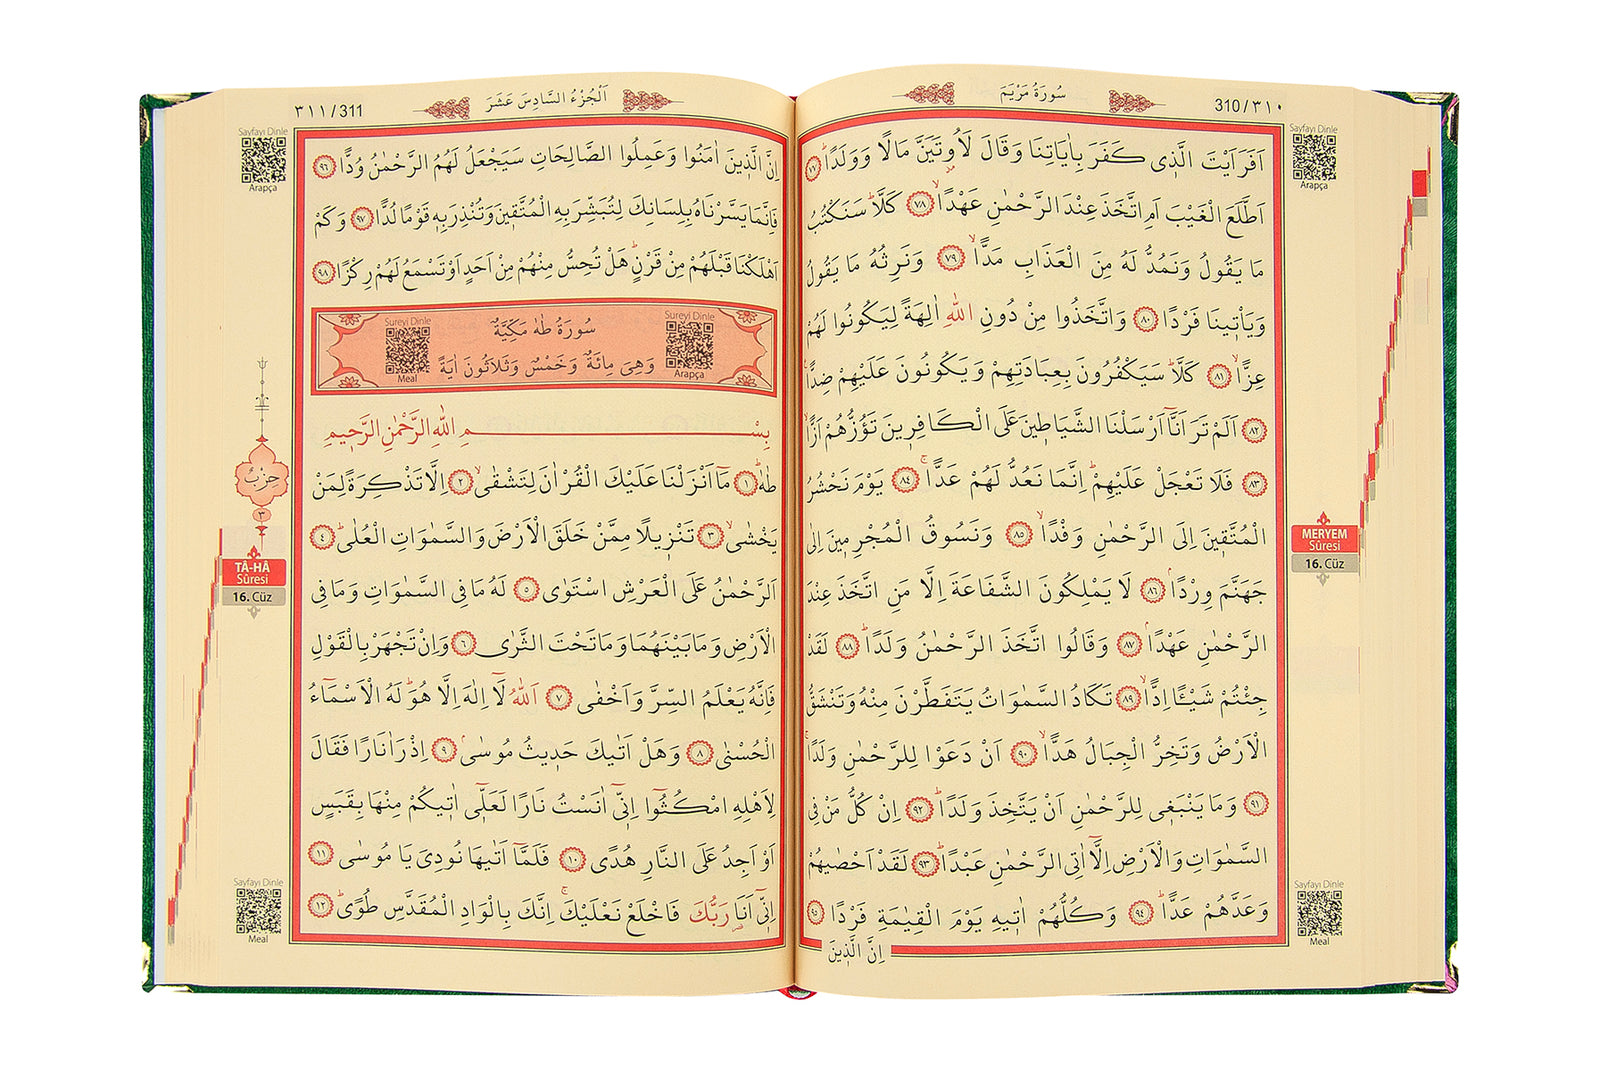 310/٣١٠
سُورَةُ مَرْيَمَ
اَفَرَاَيْتَ الَّذ۪ي كَفَرَ بِاٰيَاتِنَا وَقَالَ لَاُو۫تَيَنَّ مَالًا وَوَلَدًاۜ ﴿٧٧﴾
اَطَّلَعَ الْغَيْبَ اَمِ اتَّخَذَ عِنْدَ الرَّحْمٰنِ عَهْدًاۙ ﴿٧٨﴾ كَلَّاۜ سَنَكْتُبُ
مَا يَقُولُ وَنَمُدُّ لَهُ مِنَ الْعَذَابِ مَدًّاۙ ﴿٧٩﴾ وَنَرِثُهُ مَا يَقُولُ
وَيَأْت۪ينَا فَرْدًا ﴿٨٠﴾ وَاتَّخَذُوا مِنْ دُونِ اللّٰهِ اٰلِهَةً لِيَكُونُوا لَهُمْ
عِزًّاۙ ﴿٨١﴾ كَلَّاۜ سَيَكْفُرُونَ بِعِبَادَتِهِمْ وَيَكُونُونَ عَلَيْهِمْ ضِدًّا۟
﴿٨٢﴾ اَلَمْ تَرَ اَنَّٓا اَرْسَلْنَا الشَّيَاط۪ينَ عَلَى الْكَافِر۪ينَ تَؤُزُّهُمْ اَزًّاۙ
﴿٨٣﴾ فَلَا تَعْجَلْ عَلَيْهِمْۜ اِنَّمَا نَعُدُّ لَهُمْ عَدًّاۚ ﴿٨٤﴾ يَوْمَ نَحْشُرُ
الْمُتَّق۪ينَ اِلَى الرَّحْمٰنِ وَفْدًاۙ ﴿٨٥﴾ وَنَسُوقُ الْمُجْرِم۪ينَ اِلٰى
جَهَنَّمَ وِرْدًاۢ ﴿٨٦﴾ لَا يَمْلِكُونَ الشَّفَاعَةَ اِلَّا مَنِ اتَّخَذَ عِنْدَ
الرَّحْمٰنِ عَهْدًاۢ ﴿٨٧﴾ وَقَالُوا اتَّخَذَ الرَّحْمٰنُ وَلَدًاۜ ﴿٨٨﴾ لَقَدْ
جِئْتُمْ شَيْـًٔا اِدًّاۙ ﴿٨٩﴾ تَكَادُ السَّمٰوَاتُ يَتَفَطَّرْنَ مِنْهُ وَتَنْشَقُّ
الْاَرْضُ وَتَخِرُّ الْجِبَالُ هَدًّاۙ ﴿٩٠﴾ اَنْ دَعَوْا لِلرَّحْمٰنِ وَلَدًاۚ
﴿٩١﴾ وَمَا يَنْبَغ۪ي لِلرَّحْمٰنِ اَنْ يَتَّخِذَ وَلَدًاۜ ﴿٩٢﴾ اِنْ كُلُّ مَنْ فِي
السَّمٰوَاتِ وَالْاَرْضِ اِلَّٓا اٰتِي الرَّحْمٰنِ عَبْدًاۜ ﴿٩٣﴾ لَقَدْ اَحْصٰيهُمْ
وَعَدَّهُمْ عَدًّاۜ ﴿٩٤﴾ وَكُلُّهُمْ اٰت۪يهِ يَوْمَ الْقِيٰمَةِ فَرْدًا ﴿٩٥﴾
اِنَّ الَّذ۪ينَ
Sayfayı Dinle
Arapça
MERYEM
Sûresi
16. Cüz
Sayfayı Dinle
Meal
اَلْجُزْءُ السَّادِسَ عَشَرَ
٣١١/311
اِنَّ الَّذ۪ينَ اٰمَنُوا وَعَمِلُوا الصَّالِحَاتِ سَيَجْعَلُ لَهُمُ الرَّحْمٰنُ وُدًّا ﴿٩٦﴾
فَاِنَّمَا يَسَّرْنَاهُ بِلِسَانِكَ لِتُبَشِّرَ بِهِ الْمُتَّق۪ينَ وَتُنْذِرَ بِه۪ قَوْمًا لُدًّا ﴿٩٧﴾ وَكَمْ
اَهْلَكْنَا قَبْلَهُمْ مِنْ قَرْنٍۜ هَلْ تُحِسُّ مِنْهُمْ مِنْ اَحَدٍ اَوْ تَسْمَعُ لَهُمْ رِكْزًا ﴿٩٨﴾
Sureyi Dinle
Arapça
سُورَةُ طٰهٰ مَكِّيَّةٌ
وَهِيَ مِائَةٌ وَخَمْسٌ وَثَلَاثُونَ اٰيَةً
Sureyi Dinle
Meal
بِسْمِ اللّٰهِ الرَّحْمٰنِ الرَّح۪يمِ
طٰهٰۜ ﴿١﴾ مَٓا اَنْزَلْنَا عَلَيْكَ الْقُرْاٰنَ لِتَشْقٰىۙ ﴿٢﴾ اِلَّا تَذْكِرَةً لِمَنْ
يَخْشٰىۙ ﴿٣﴾ تَنْز۪يلًا مِمَّنْ خَلَقَ الْاَرْضَ وَالسَّمٰوَاتِ الْعُلٰىۜ ﴿٤﴾
اَلرَّحْمٰنُ عَلَى الْعَرْشِ اسْتَوٰى ﴿٥﴾ لَهُ مَا فِي السَّمٰوَاتِ وَمَا فِي
الْاَرْضِ وَمَا بَيْنَهُمَا وَمَا تَحْتَ الثَّرٰى ﴿٦﴾ وَاِنْ تَجْهَرْ بِالْقَوْلِ
فَاِنَّهُ يَعْلَمُ السِّرَّ وَاَخْفٰى ﴿٧﴾ اَللّٰهُ لَٓا اِلٰهَ اِلَّا هُوَۜ لَهُ الْاَسْمَٓاءُ
الْحُسْنٰى ﴿٨﴾ وَهَلْ اَتٰيكَ حَد۪يثُ مُوسٰىۢ ﴿٩﴾ اِذْ رَاٰ نَارًا فَقَالَ
لِاَهْلِهِ امْكُثُٓوا اِنّ۪ٓي اٰنَسْتُ نَارًا لَعَلّ۪ٓي اٰت۪يكُمْ مِنْهَا بِقَبَسٍ
اَوْ اَجِدُ عَلَى النَّارِ هُدًى ﴿١٠﴾ فَلَمَّٓا اَتٰيهَا نُودِيَ يَا مُوسٰى ﴿١١﴾
اِنّ۪ٓي اَنَا۬ رَبُّكَ فَاخْلَعْ نَعْلَيْكَۚ اِنَّكَ بِالْوَادِ الْمُقَدَّسِ طُوًىۜ ﴿١٢﴾
Sayfayı Dinle
Arapça
حِزْبٌ
٣
TÂ-HÂ
Sûresi
16. Cüz
Sayfayı Dinle
Meal